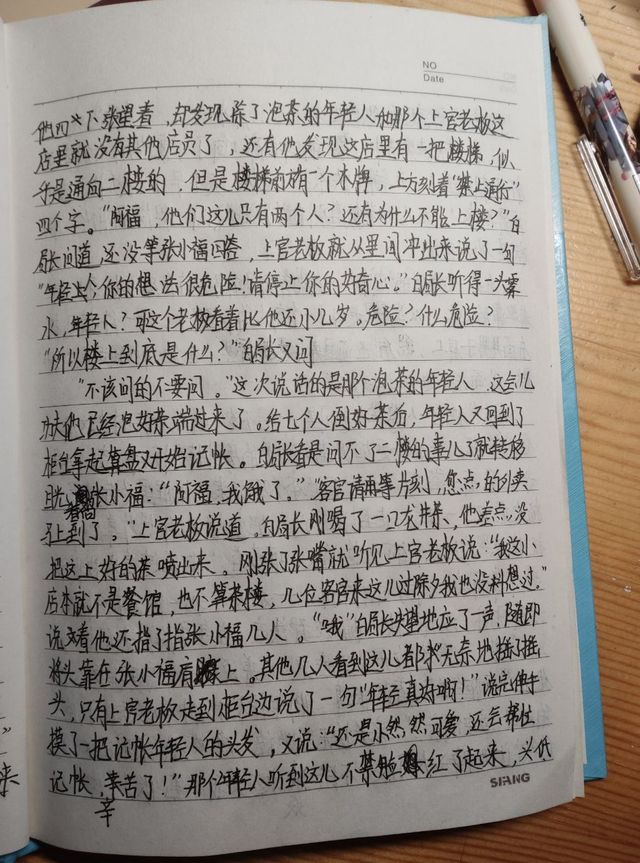 NO
Date
他四处下张望着，却发现除了泡茶的年轻人和那个上官老板这
店里就没有其他店员了，还有他发现这店里有一把楼梯，似
乎是通向二楼的，但是楼梯前有一个木牌，上方刻着“禁止通行”
四个字。“阿福，他们这儿只有两个人？还有为什么不能上楼？”白
局长问道，还没等张小福回答，上官老板就从里间冲出来说了一句
“年轻人，你的想法很危险！请停止你的好奇心。”白局长听得一头雾
水，年轻人？可这个老板看着比他还小几岁。危险？什么危险？
“所以楼上到底是什么？”白局长又问
“不该问的不要问。”这次说话的是那个泡茶的年轻人，这会儿
功夫他已经泡好茶端过来了。给七个人倒好茶后，年轻人又回到了
柜台拿起算盘开始记帐。白局长看是问不了二楼的事儿了就转移
目光看向张小福：“阿福，我饿了。”“客官请再等片刻，您点的外卖
马上到了。”上官老板说道。白局长刚喝了一口龙井茶，他差点没
把这上好的茶喷出来。刚张了张嘴就听见上官老板说：“我这小
店本就不是餐馆，也不算茶楼，几位客官来这儿过除夕我也没料想过。”
说着他还指了指张小福几人。“哦”白局长失望地应了一声，随即
将头靠在张小福肩膀上。其他几人看到这儿都无奈地摇了摇
头，只有上官老板走到柜台边说了一句“年轻真好啊！”说完伸手
摸了一把记帐年轻人的头发，又说：“还是小然然可爱，还会帮忙
记帐，辛苦了！”那个年轻人听到这儿不禁脸红了起来，头低
SIFANG
来